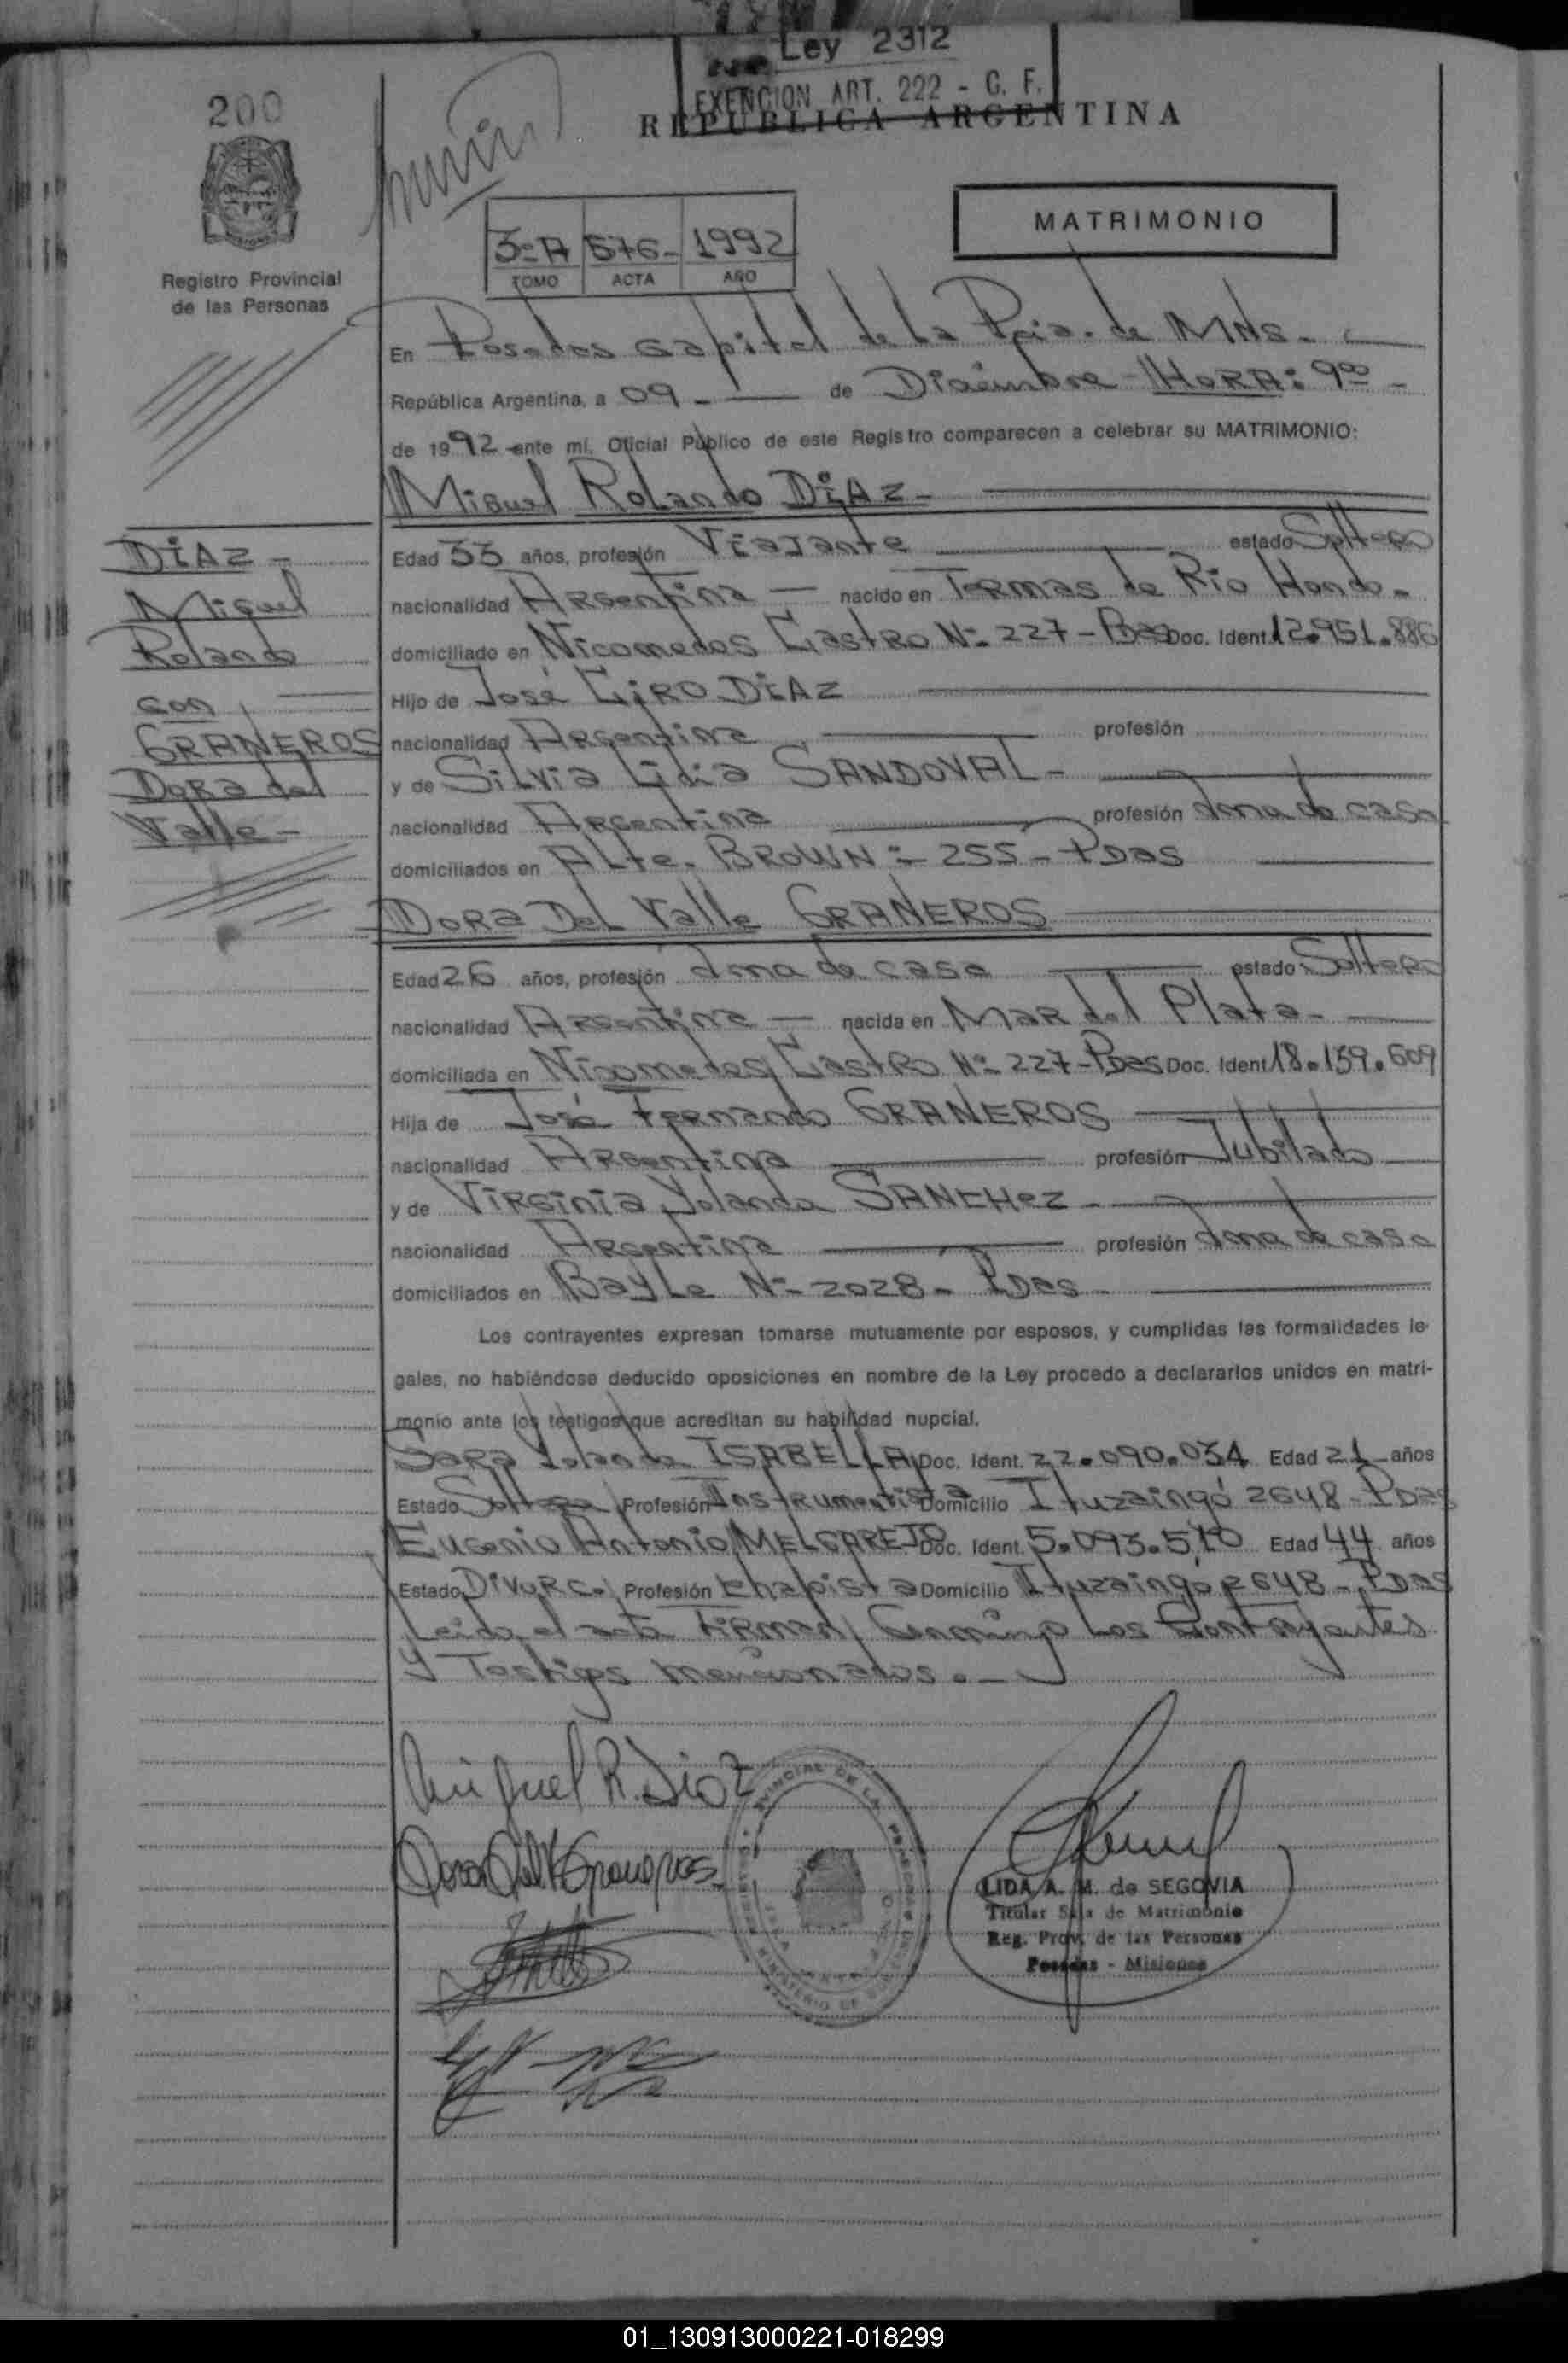 Ley 2312
EXENCION ART. 222 - C. F.
REPUBLICA ARGENTINA
200
MATRIMONIO
3º A 576- 1992
TOMO ACTA AÑO
Registro Provincial
de las Personas
En Posadas Capital de la Pcia. de Mnes.
República Argentina, a 09 - de Diciembre - HORA: 9⁰⁰ -
de 1992 ante mí, Oficial Público de este Registro comparecen a celebrar su MATRIMONIO:
Miguel Rolando DIAZ -
DIAZ -
Miguel
Rolando
con
GRANEROS
Dora del
Valle -
Edad 33 años, profesión Viajante estado Soltero
nacionalidad Argentina nacido en Termas de Rio Hondo -
domiciliado en Nicomedes Castro Nº 227 - Pdas Doc. Ident. 12.951.886
Hijo de José CIRO DIAZ
nacionalidad Argentina profesión
y de Silvia Lidia SANDOVAL -
nacionalidad Argentina profesión Ama de casa
domiciliados en Alte. BROWN - 255 - Pdas
Dora Del Valle GRANEROS
Edad 26 años, profesión Ama de casa estado Soltera
nacionalidad Argentina nacida en Mar del Plata -
domiciliada en Nicomedes Castro Nº 227 - Pdas Doc. Ident. 18.139.609
Hija de José Fernando GRANEROS
nacionalidad Argentina profesión Jubilado
y de Virginia Yolanda SANCHEZ -
nacionalidad Argentina profesión Ama de casa
domiciliados en Bayle Nº 2028 - Pdas -
Los contrayentes expresan tomarse mutuamente por esposos, y cumplidas las formalidades le-
gales, no habiéndose deducido oposiciones en nombre de la Ley procedo a declararlos unidos en matri-
monio ante los testigos que acreditan su habilidad nupcial.
Sara Yolanda ISABELLA Doc. Ident. 22.090.034 Edad 21 años
Estado Soltera Profesión Instrumentista Domicilio Ituzaingó 2648 - Pdas
Eugenio Antonio MELGAREJO Doc. Ident. 5.093.510 Edad 44 años
Estado Divorc. Profesión Chapista Domicilio Ituzaingó 2648 - Pdas
Leida el acta Firman Conmigo Los Contrayentes
y Testigos mencionados. -
Miguel R. Diaz
Dora del V Graneros
LIDA A. M. de SEGOVIA
Titular Sala de Matrimonio
Reg. Prov. de las Personas
Posadas - Misiones
01_130913000221-018299